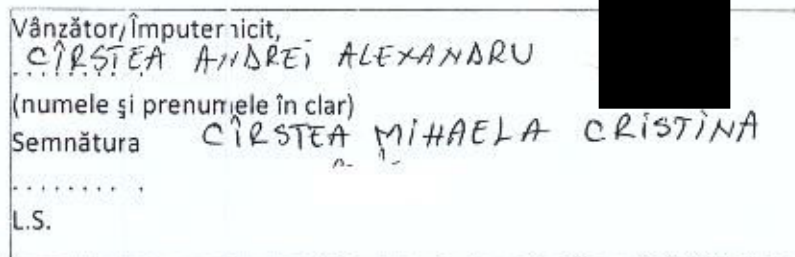 Vânzător/Împuternicit,
CÎRSTEA ANDREI ALEXANDRU
. . . . . . . .
(numele și prenumele în clar)
Semnătura CÎRSTEA MIHAELA CRISTINA
. . . . . . . .
L.S.